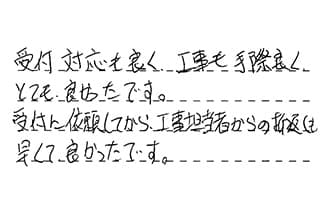 受付 対応も良く、工事も手際良く
とても良かったです。
受付に依頼してから工事担当者からの折返しも
早くて良かったです。